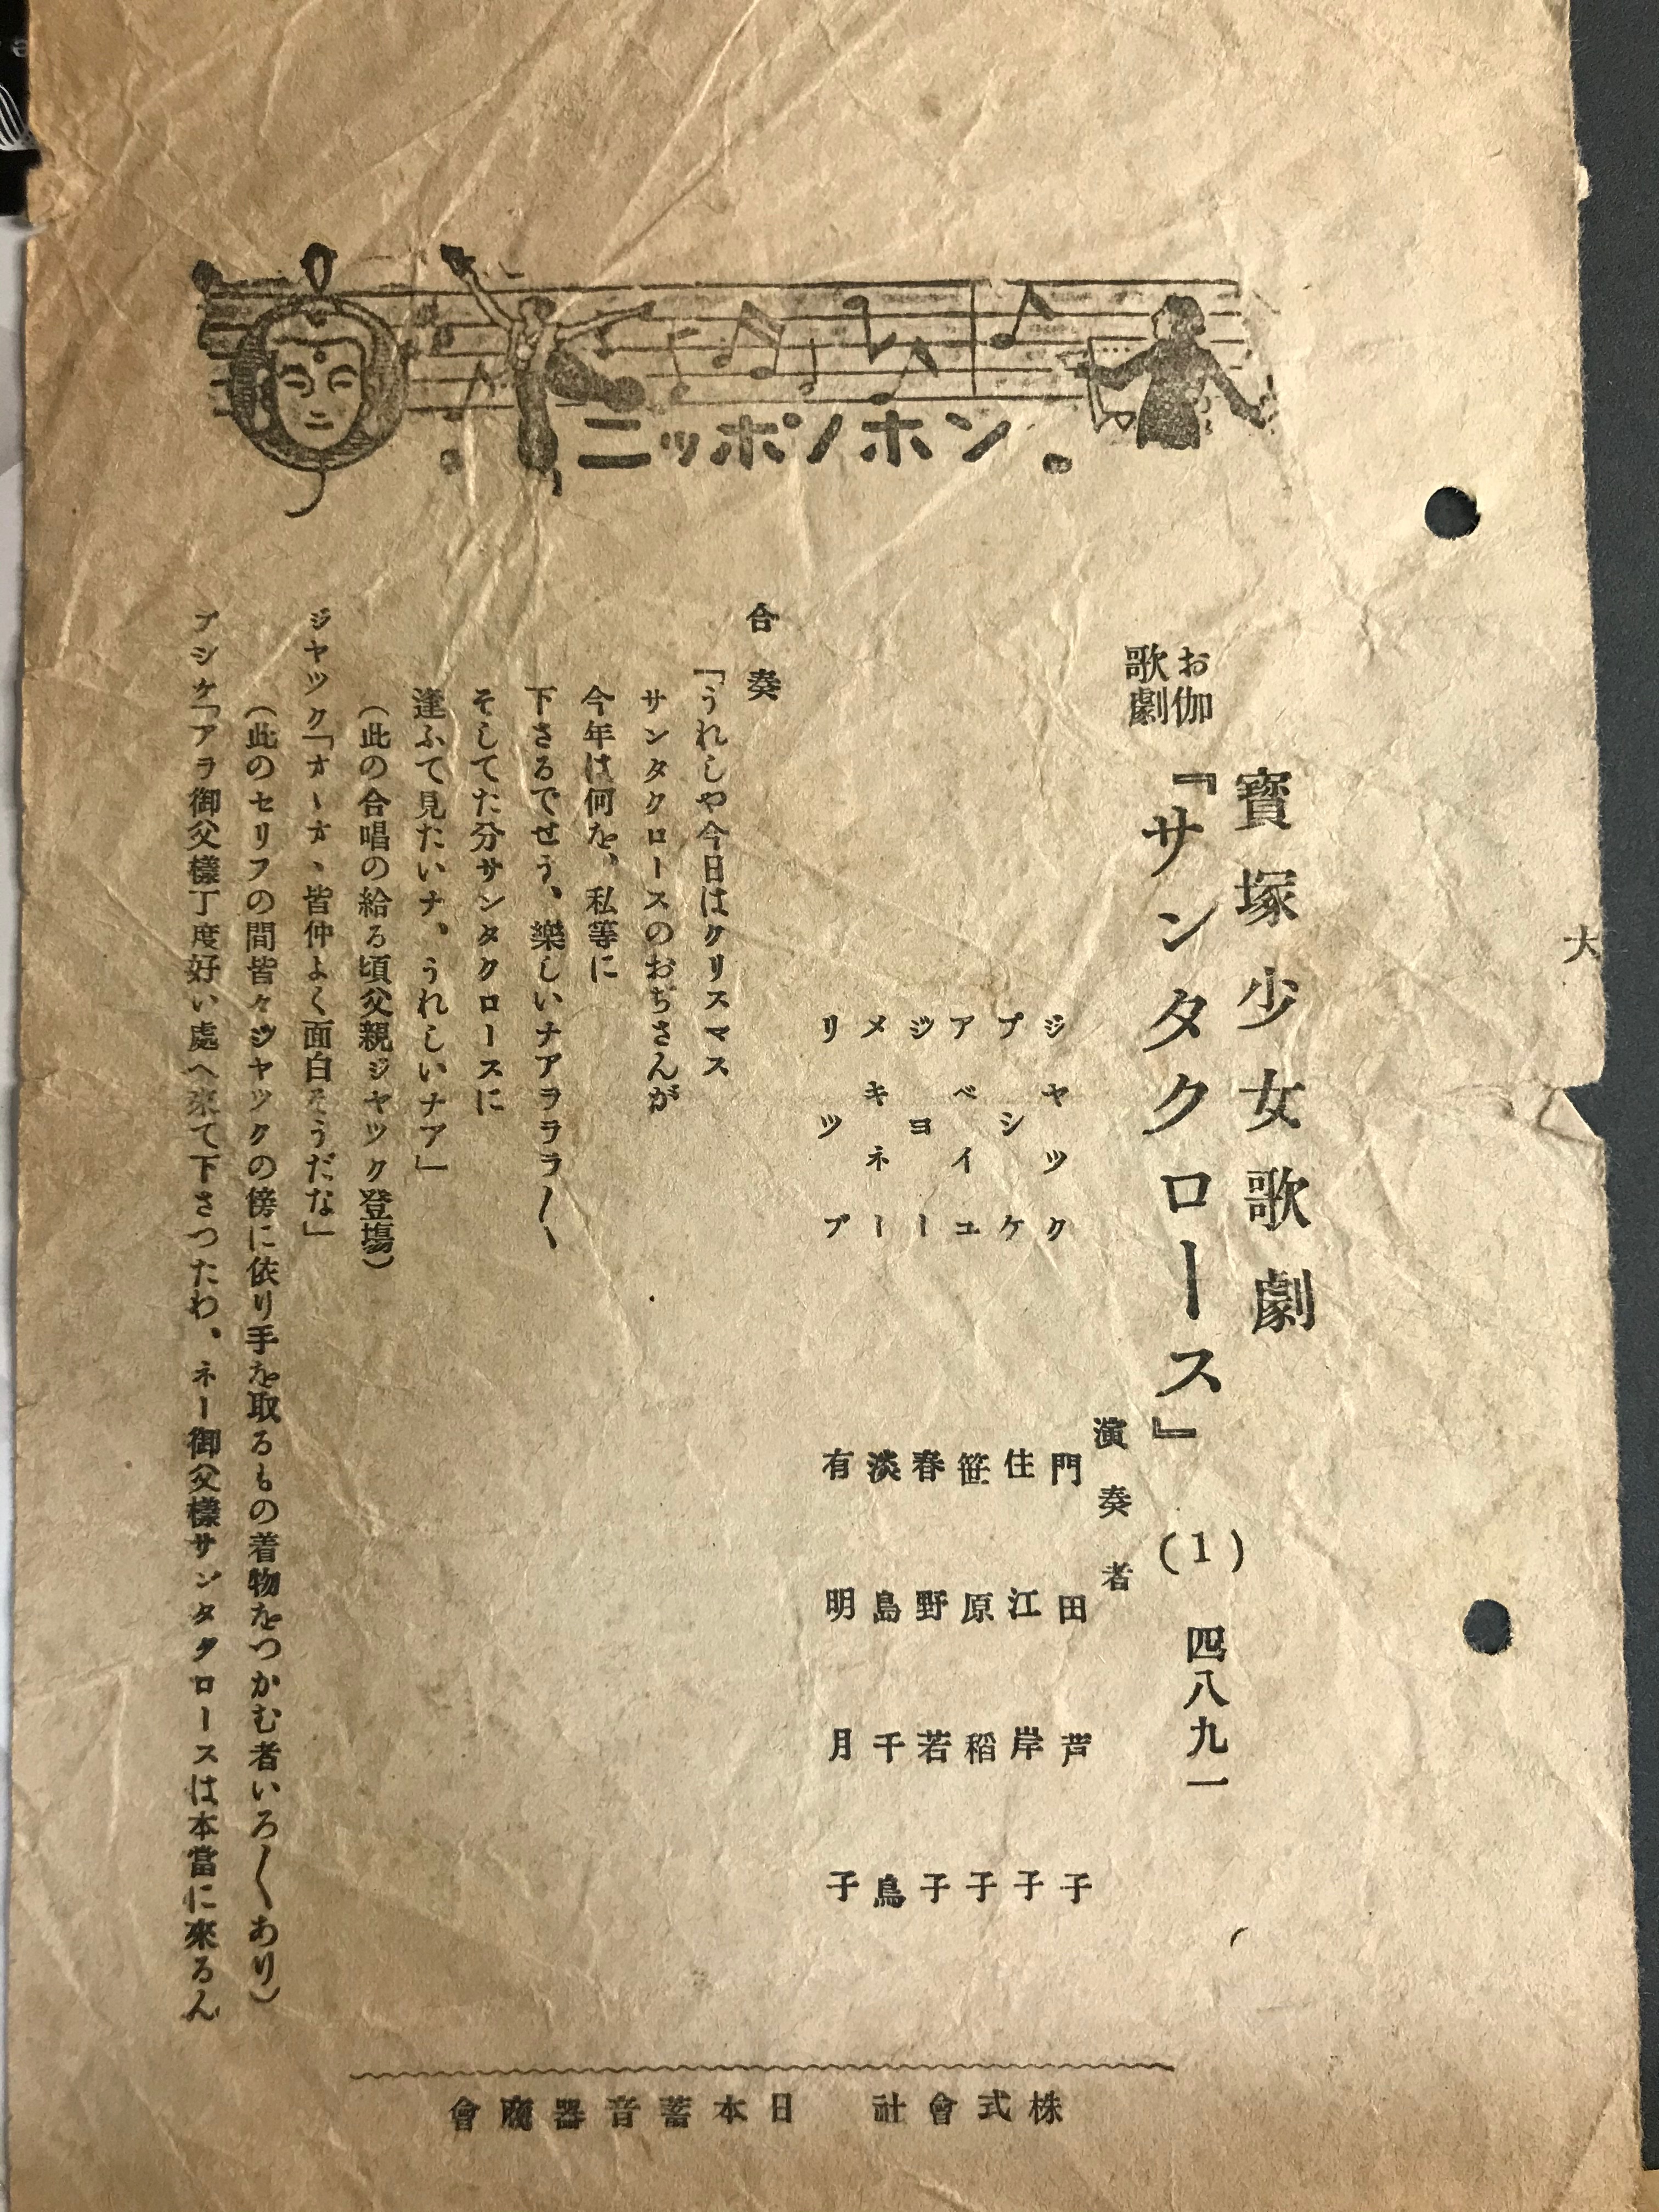 大
ニッポノホン
寶塚少女歌劇
お伽
歌劇
『サンタクロース』
(1)
四八九一
演奏者
ジヤツク 門田芦子
プシケ 住江岸子
アベイユ 笹原稲子
ジヨー 春野若子
メキネー 淡島千鳥
リツプ 有明月子
合奏
「うれしや今日はクリスマス
サンタクロースのおぢさんが
今年は何を、私等に
下さるでせう、樂しいナアラララ〱
そしてた分サンタクロースに
逢ふて見たいナ、うれしいナア」
(此の合唱の給る頃父親ジヤツク登塲)
ジヤツク「オーオー、皆仲よく面白そうだな」
(此のセリフの間皆々ジヤツクの傍に依り手を取るもの着物をつかむ者いろ〱あり)
プシケ「アラ御父樣丁度好い處へ來て下さつたわ、ネー御父樣サンタクロースは本當に來るん
株式會社 日本蓄音器商會